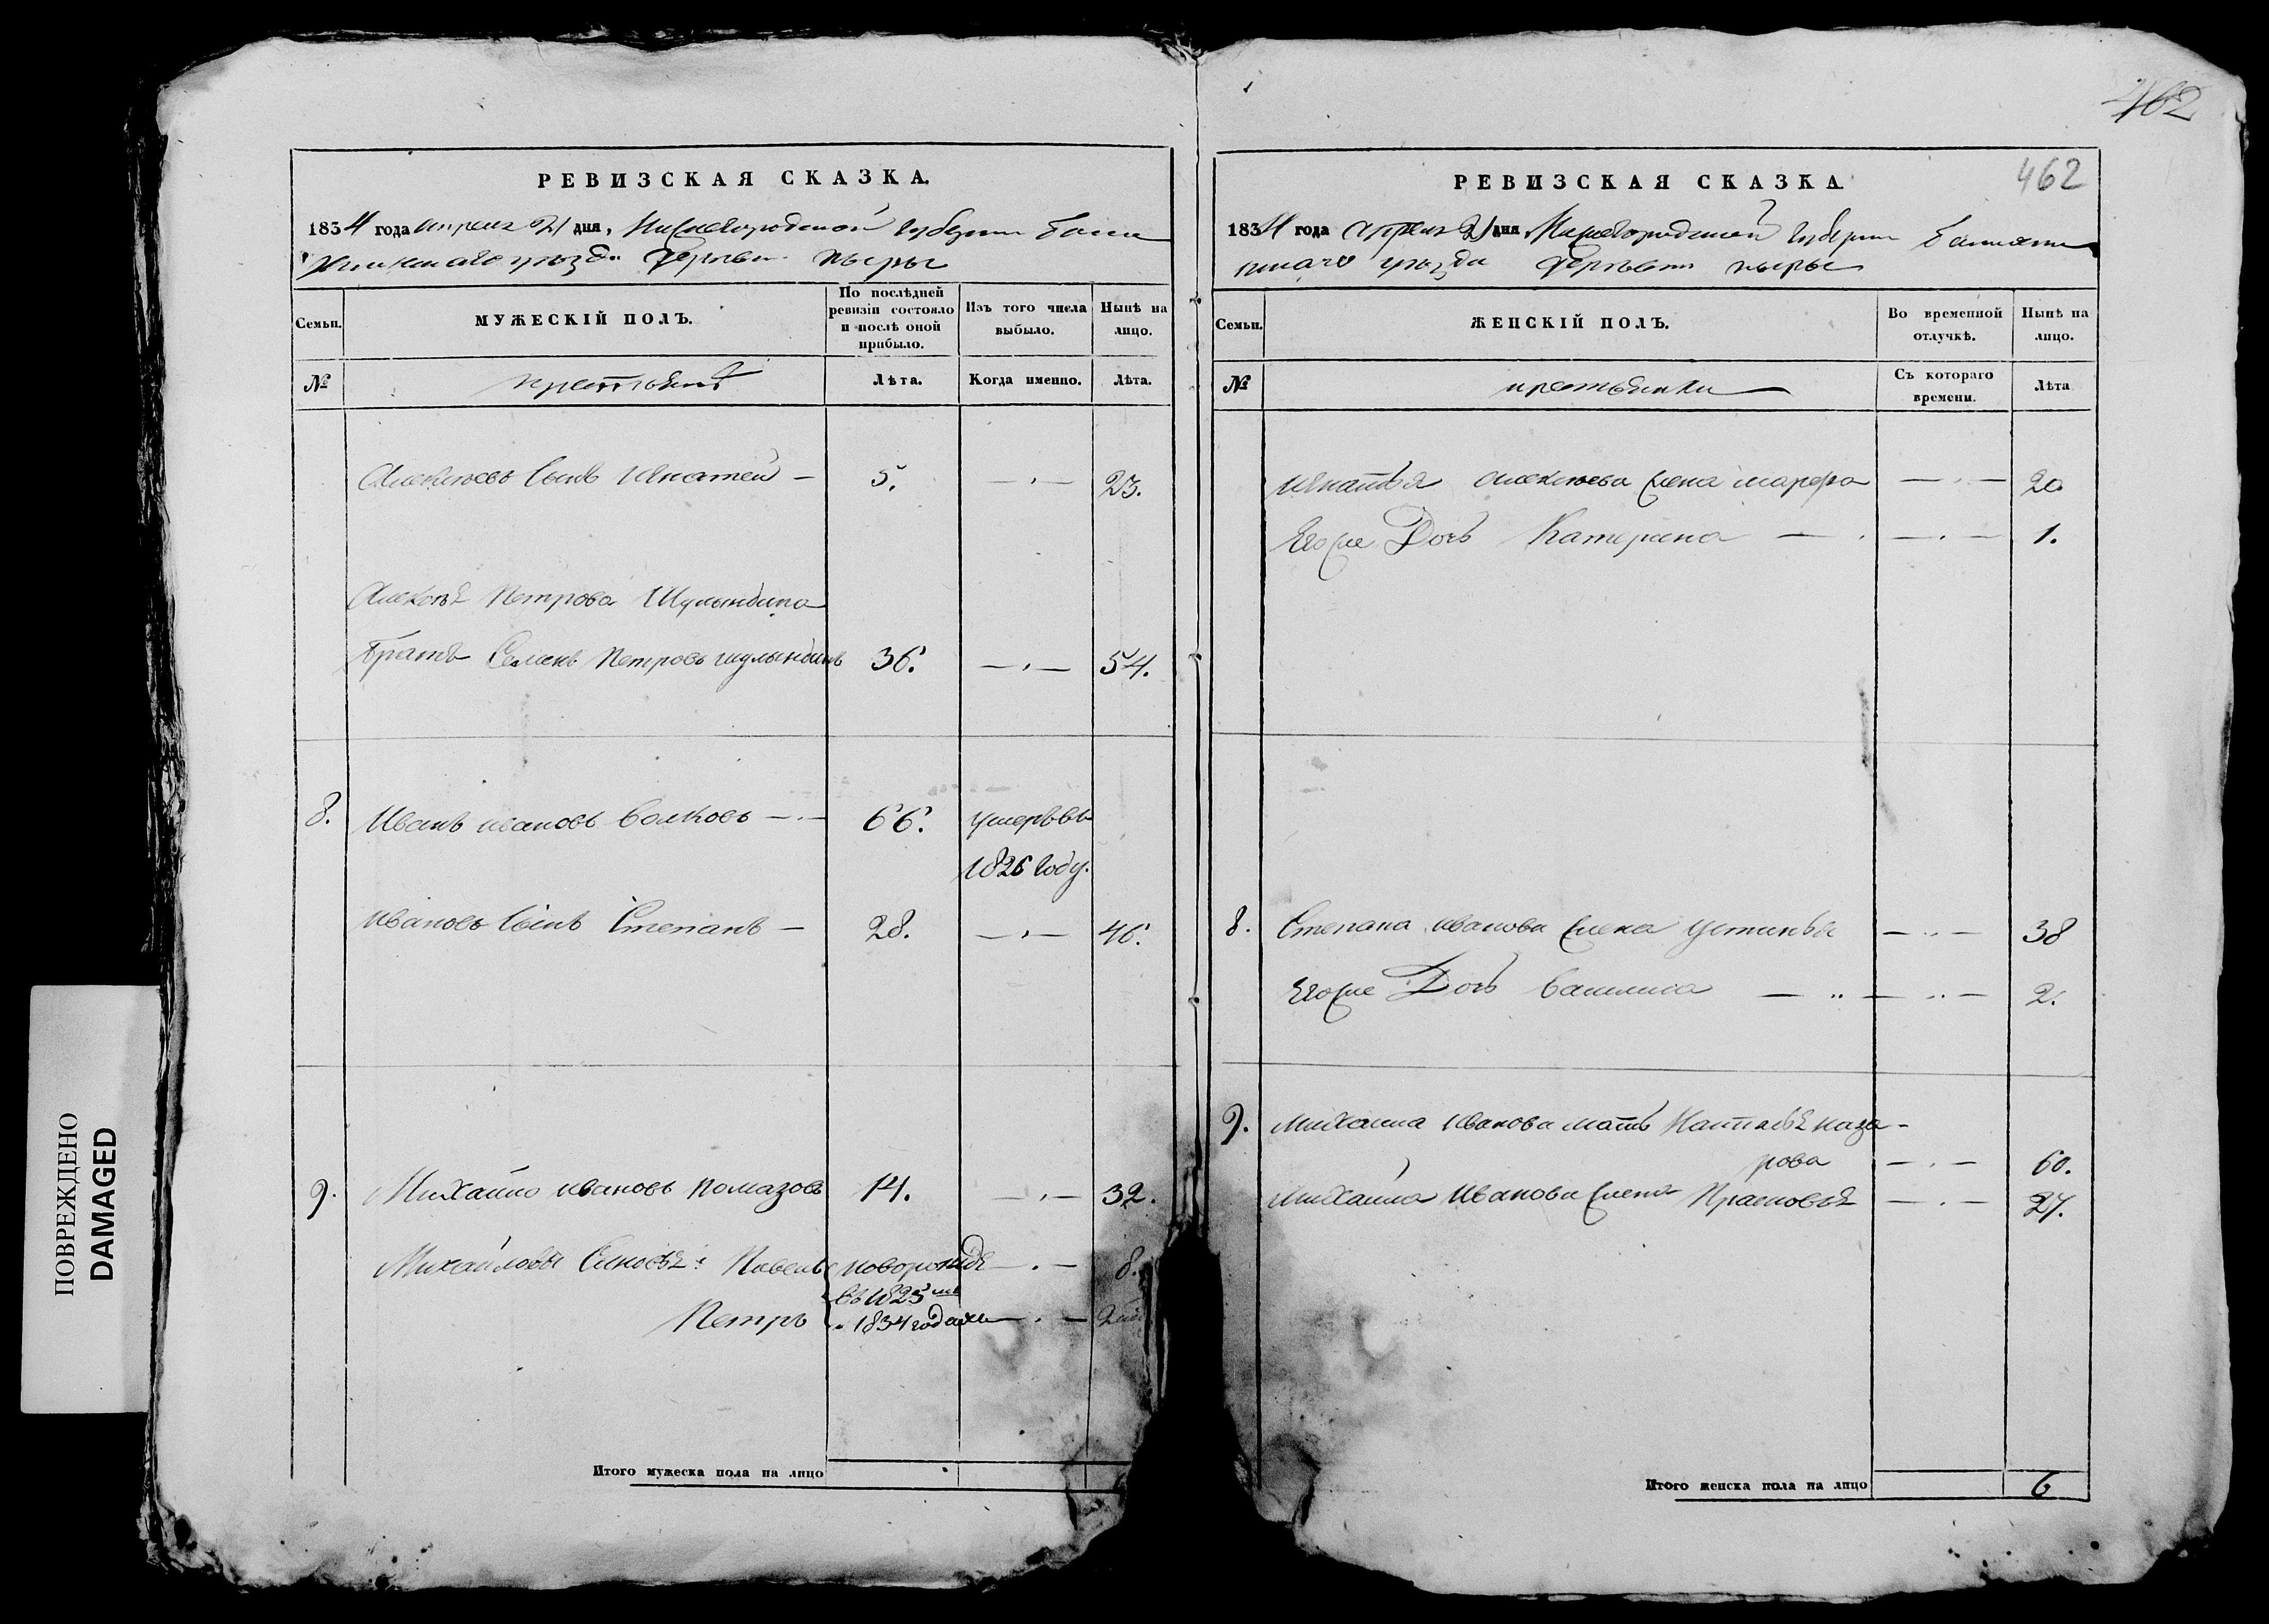 462
РЕВИЗСКАЯ СКАЗКА.
1834 года апреля 21 дня, Нижегородской губернии Бала
хнинскаго уезда деревни Пыры
Семьи.
МУЖЕСКІЙ ПОЛЪ.
По послѣдней ревизіи состояло и послѣ оной прибыло.
Изъ того числа выбыло.
Нынѣ на лицо.
№
крестьяне
Лѣта.
Когда именно.
Лѣта.
Алексѣевъ Сынъ Игнатей — 5. — 23.
Алексѣя Петрова Шулындина
Братъ Семенъ Петровъ шулындинъ 36. — 54.
8. Иванъ ивановъ Волковъ — 66. умеръ въ
1826 году.
ивановъ Сынъ Степанъ — 28. — 46.
9. Михайло ивановъ помазовъ 14. — 32.
Михайловы Сыновья: Павелъ новорожде — 8.
въ 1825 мъ
Петръ 1834 годахъ —
Итого мужеска пола на лицо
462
РЕВИЗСКАЯ СКАЗКА.
1834 года апреля 21 дня Нижегородской губернии Балахни
нскаго уезда деревни пыры
Семьи.
ЖЕНСКІЙ ПОЛЪ.
Во временной отлучкѣ.
Нынѣ на лицо.
№
крестьянки
Съ котораго времени.
Лѣта
игнатья алексѣева жена марфа — 20
Егоже Дочь Катерина — — 1.
8. Степана иванова жена устинья — 38
Егоже Дочь Василиса — — 2.
9. михаила иванова мать Наталья наза-
рова — 60.
михаила иванова жена Прасковья — 27.
Итого женска пола на лицо 6
ПОВРЕЖДЕНО
DAMAGED